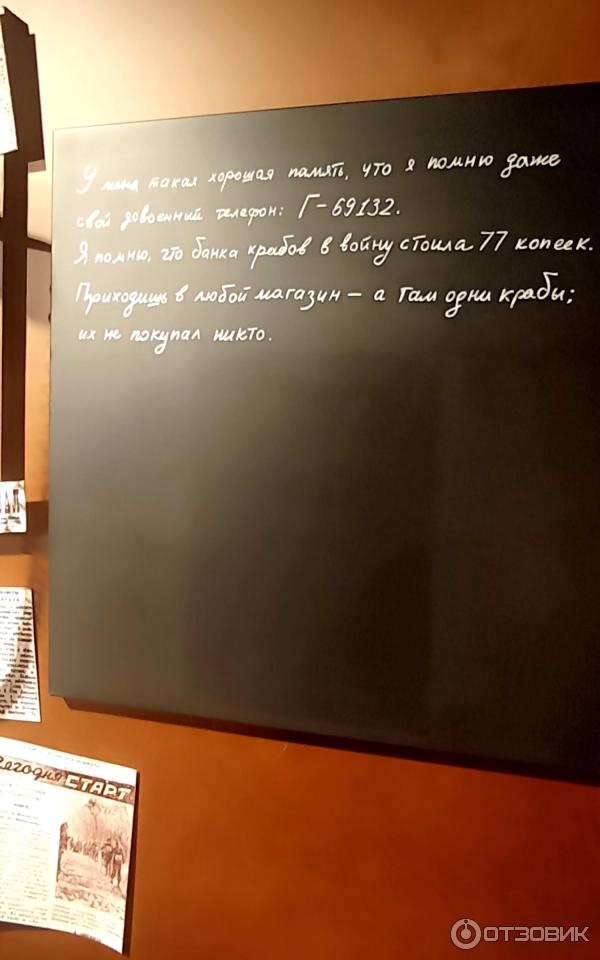 У меня такая хорошая память, что я помню даже
свой довоенный телефон: Г-69132.
Я помню, что банка крабов в войну стоила 77 копеек.
Приходишь в любой магазин – а там одни крабы;
их не покупал никто.
Сегодня СТАРТ
ОТЗОВИК